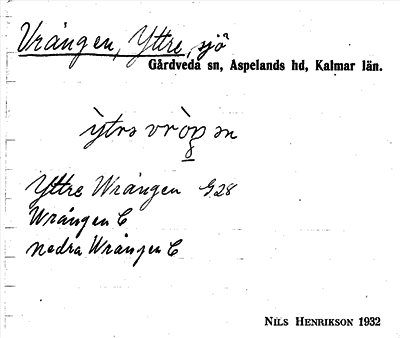 Vrången, Yttre, sjö
Gårdveda sn, Aspelands hd, Kalmar län.
ỳtrə vròŋən
8
Yttre Wrången G28
Wrången C
Nedra Wrången C
NILS HENRIKSON 1932